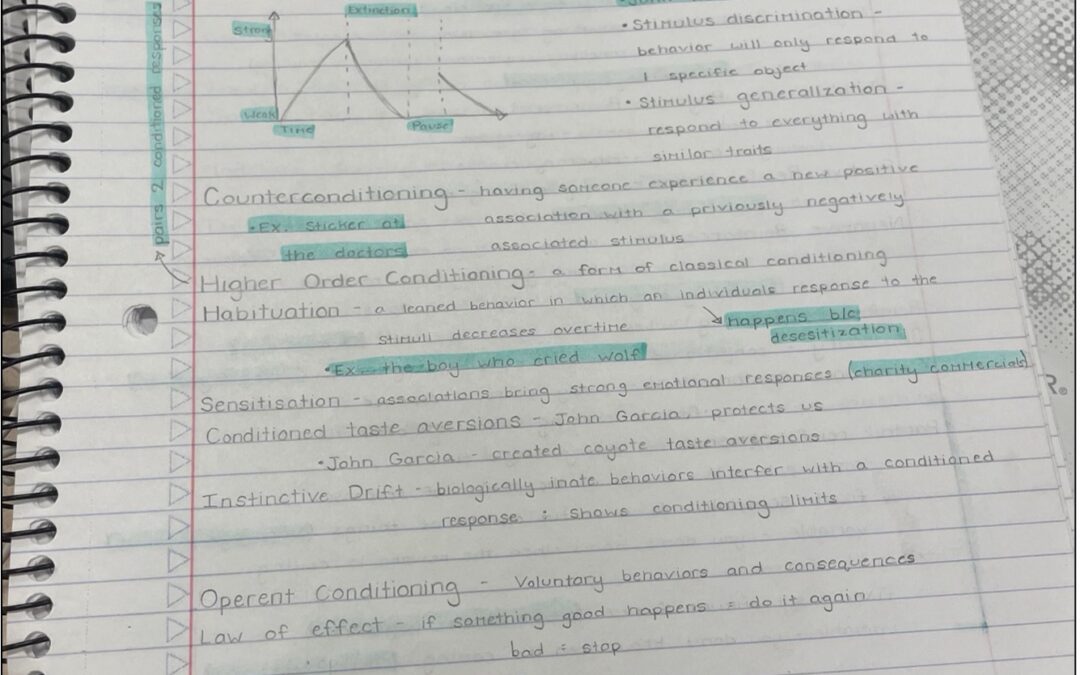 Extinction
Strong
Weak
Time
Pause
pairs 2 conditioned responses
• Stimulus discrimination -
behavior will only respond to
1 specific object
• Stimulus generalization -
respond to everything with
similar traits
Counterconditioning - having someone experience a new positive
• Ex. Sticker at association with a priviously negatively
the doctors associated stimulus
Higher Order Conditioning - a form of classical conditioning
Habituation - a leaned behavior in which an individuals response to the
stimuli decreases overtime
happens b/c
desesitization
• Ex - the boy who cried wolf
Sensitisation - associations bring strong emotional responses (charity commercials)
Conditioned taste aversions - John Garcia, protects us
• John Garcia - created coyote taste aversions
Instinctive Drift - biologically inate behaviors interfer with a conditioned
response : shows conditioning limits
Operent Conditioning - Voluntary behaviors and consequences
Law of effect - if something good happens = do it again
bad = stop
R®